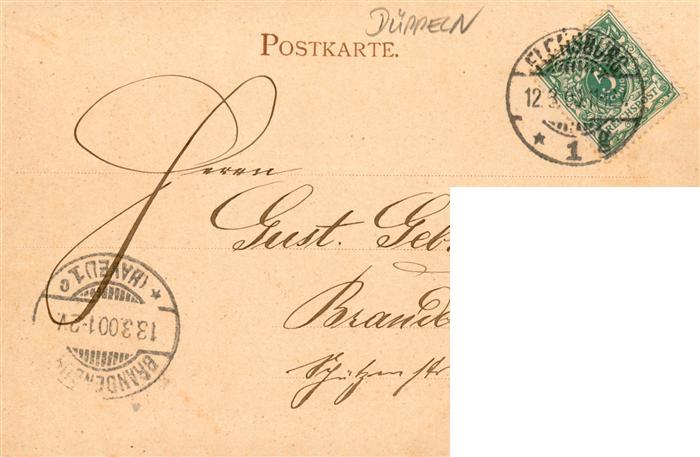 DÜPPELN
POSTKARTE.
FLENSBURG
12.3.
* 1 c
5
REICHSPOST
Herrn
Gust. Geb
Brandb
Schützenstr.
BRANDENBURG
13.3.00.1-2N
* (HAVEL) 1 c